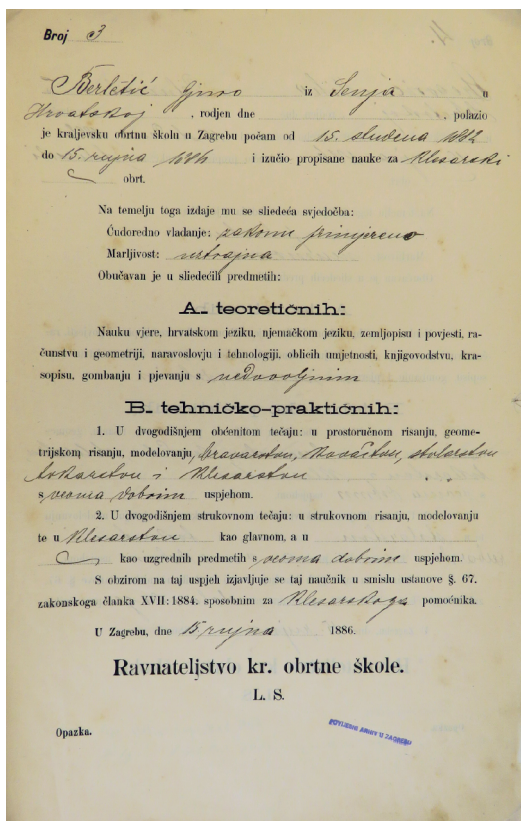 Broj 3
Berletić Gjuro iz Senja u
Hrvatskoj , rodjen dne , polazio
je kraljevsku obrtnu školu u Zagrebu počam od 15. studena 1882
do 15. rujna 1886 i izučio propisane nauke za klesarski
obrt.
Na temelju toga izdaje mu se sliedeća svjedočba:
Ćudoredno vladanje: zakonu primjereno
Marljivost: ustrajna
Obučavan je u sliedećih predmetih:
A. teoretičnih:
Nauku vjere, hrvatskom jeziku, njemačkom jeziku, zemljopisu i povjesti, ra-
čunstvu i geometriji, naravoslovju i tehnologiji, oblicih umjetnosti, knjigovodstvu, kra-
sopisu, gombanju i pjevanju s nedovoljnim
B. tehničko-praktičnih:
1. U dvogodišnjem obćenitom tečaju: u prostoručnom risanju, geome-
trijskom risanju, modelovanju, bravarstvu, kovačtvu, stolarstvu
tokarstvu i klesarstvu
s veoma dobrim uspjehom.
2. U dvogodišnjem strukovnom tečaju: u strukovnom risanju, modelovanju
te u klesarstvu kao glavnom, a u
kao uzgrednih predmetih s veoma dobrim uspjehom.
S obzirom na taj uspjeh izjavljuje se taj naučnik u smislu ustanove §. 67.
zakonskoga članka XVII: 1884. sposobnim za klesarskoga pomoćnika.
U Zagrebu, dne 15 rujna 1886.
Ravnateljstvo kr. obrtne škole.
L. S.
POVIJESNI ARHIV U ZAGREBU
Opazka.